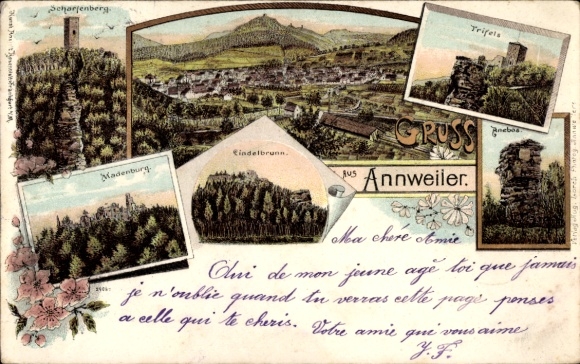 Scharfenberg.
Trifels
Anebos.
Gruss
aus
Annweiler.
Lindelbrunn.
Madenburg.
Ma chere Amie
Oui de mon jeune agé toi que jamais
je n'oublie quand tu verras cette page penses
a celle qui te cheris. Votre amie qui vous aime
Y. F.